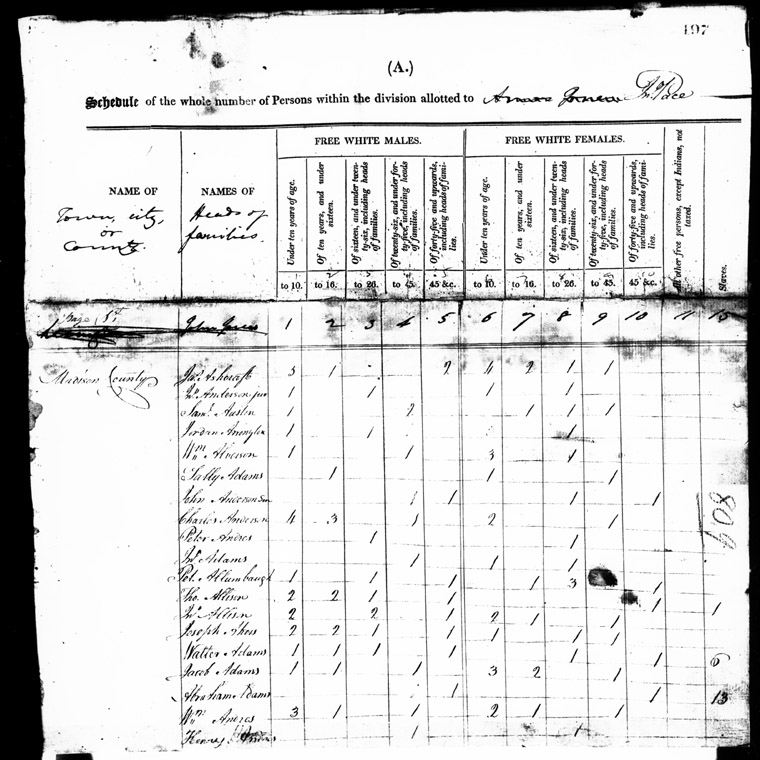 197
(A.)
Schedule of the whole number of Persons within the division allotted to Pace
FREE WHITE MALES. FREE WHITE FEMALES.
NAME OF Town, city, or County.
NAMES OF Heads of families.
Under ten years of age. to 10.
Of ten years, and under sixteen. to 16.
Of sixteen, and under twenty-six, including heads of families. to 26.
Of twenty-six, and under forty-five, including heads of families. to 45.
Of forty-five and upwards, including heads of families. 45 &c.
Under ten years of age. to 10.
Of ten years, and under sixteen. to 16.
Of sixteen, and under twenty-six, including heads of families. to 26.
Of twenty-six, and under forty-five, including heads of families. to 45.
Of forty-five and upwards, including heads of families. 45 &c.
All other free persons, except Indians, not taxed.
Slaves.
Page 1st 1 2 3 4 5 6 7 8 9 10 11
Madison County Jas. Ashcraft 3 1 2 4 2 1 1
Jno. Anderson jur 1 1 1 1
Saml. Austin 1 2 1 1 1
Jordan 1 1 1
Wm. 1 1 3 1
Sally Adams 1 1 1
John Anderson Sen 1 1 1 1 1
Charles Anderson 4 3 1 2 1
Peter Andres 1 1
Jno. Adams 1 1 1
Pet. Allumbaugh 1 1 1 1 3 1
Tho. Allison 2 2 1 1 1
Jno. Allison 2 2 1 2 1 1 1
Joseph 2 2 1 1 1 1 1
Walter Adams 1 1 1 1 1 1 6
Jacob Adams 1 1 1 3 2 1
Abraham Adams 1 1 13
Wm. Andres 3 1 1 2 1 1
Henry 1 1